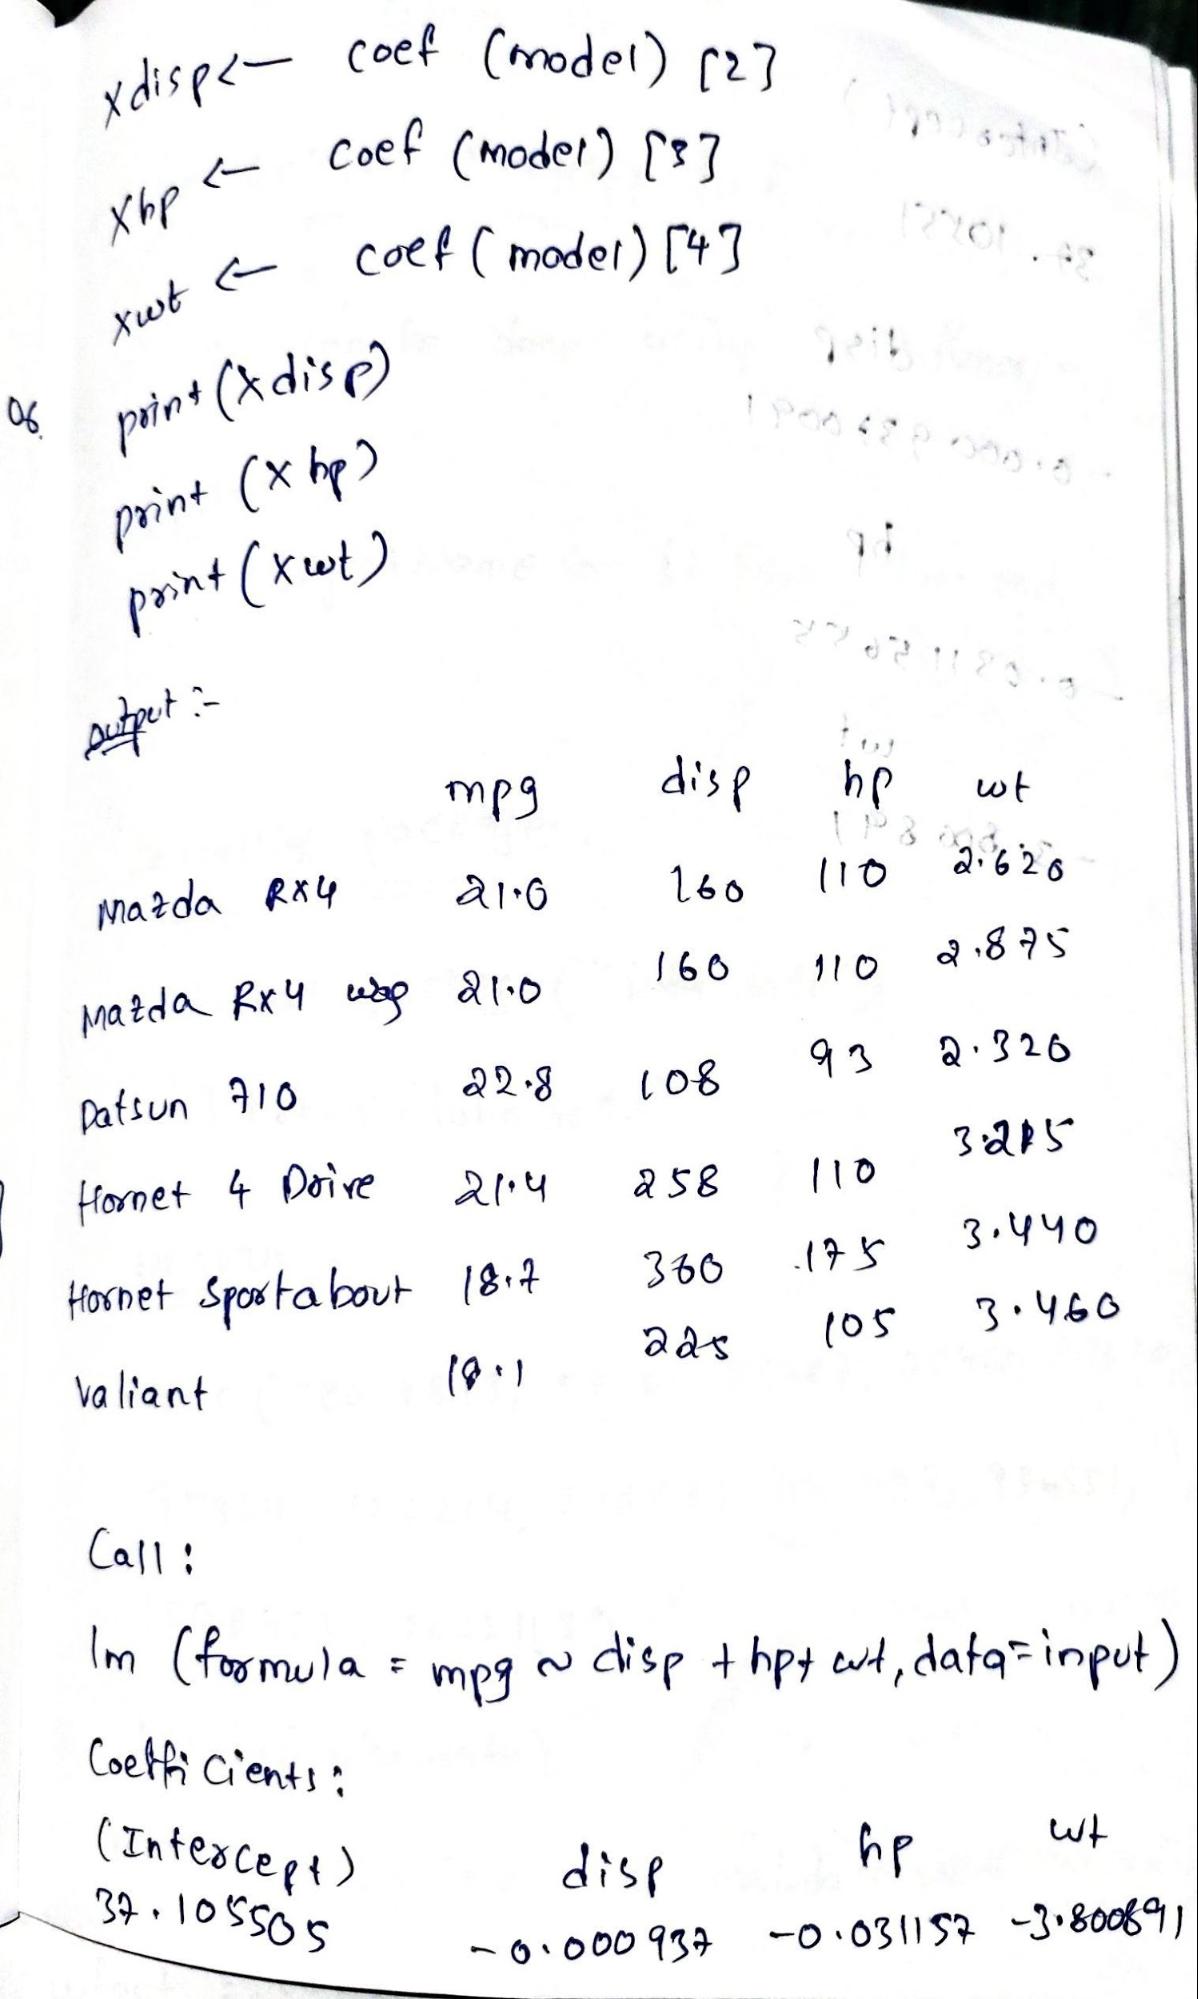 xdisp<- coef (model) [2]
xhp <- coef (model) [3]
xwt <- coef (model) [4]
print (xdisp)
print (xhp)
print (xwt)
output :-
mpg disp hp wt
Mazda RX4 21.0 160 110 2.620
Mazda RX4 wag 21.0 160 110 2.875
Datsun 710 22.8 108 93 2.320
Hornet 4 Drive 21.4 258 110 3.215
Hornet Sportabout 18.7 360 175 3.440
Valiant 18.1 225 105 3.460
Call :
lm (formula = mpg ~ disp + hp + wt, data = input)
Coefficients :
(Intercept) disp hp wt
37.105505 -0.000937 -0.031157 -3.800891